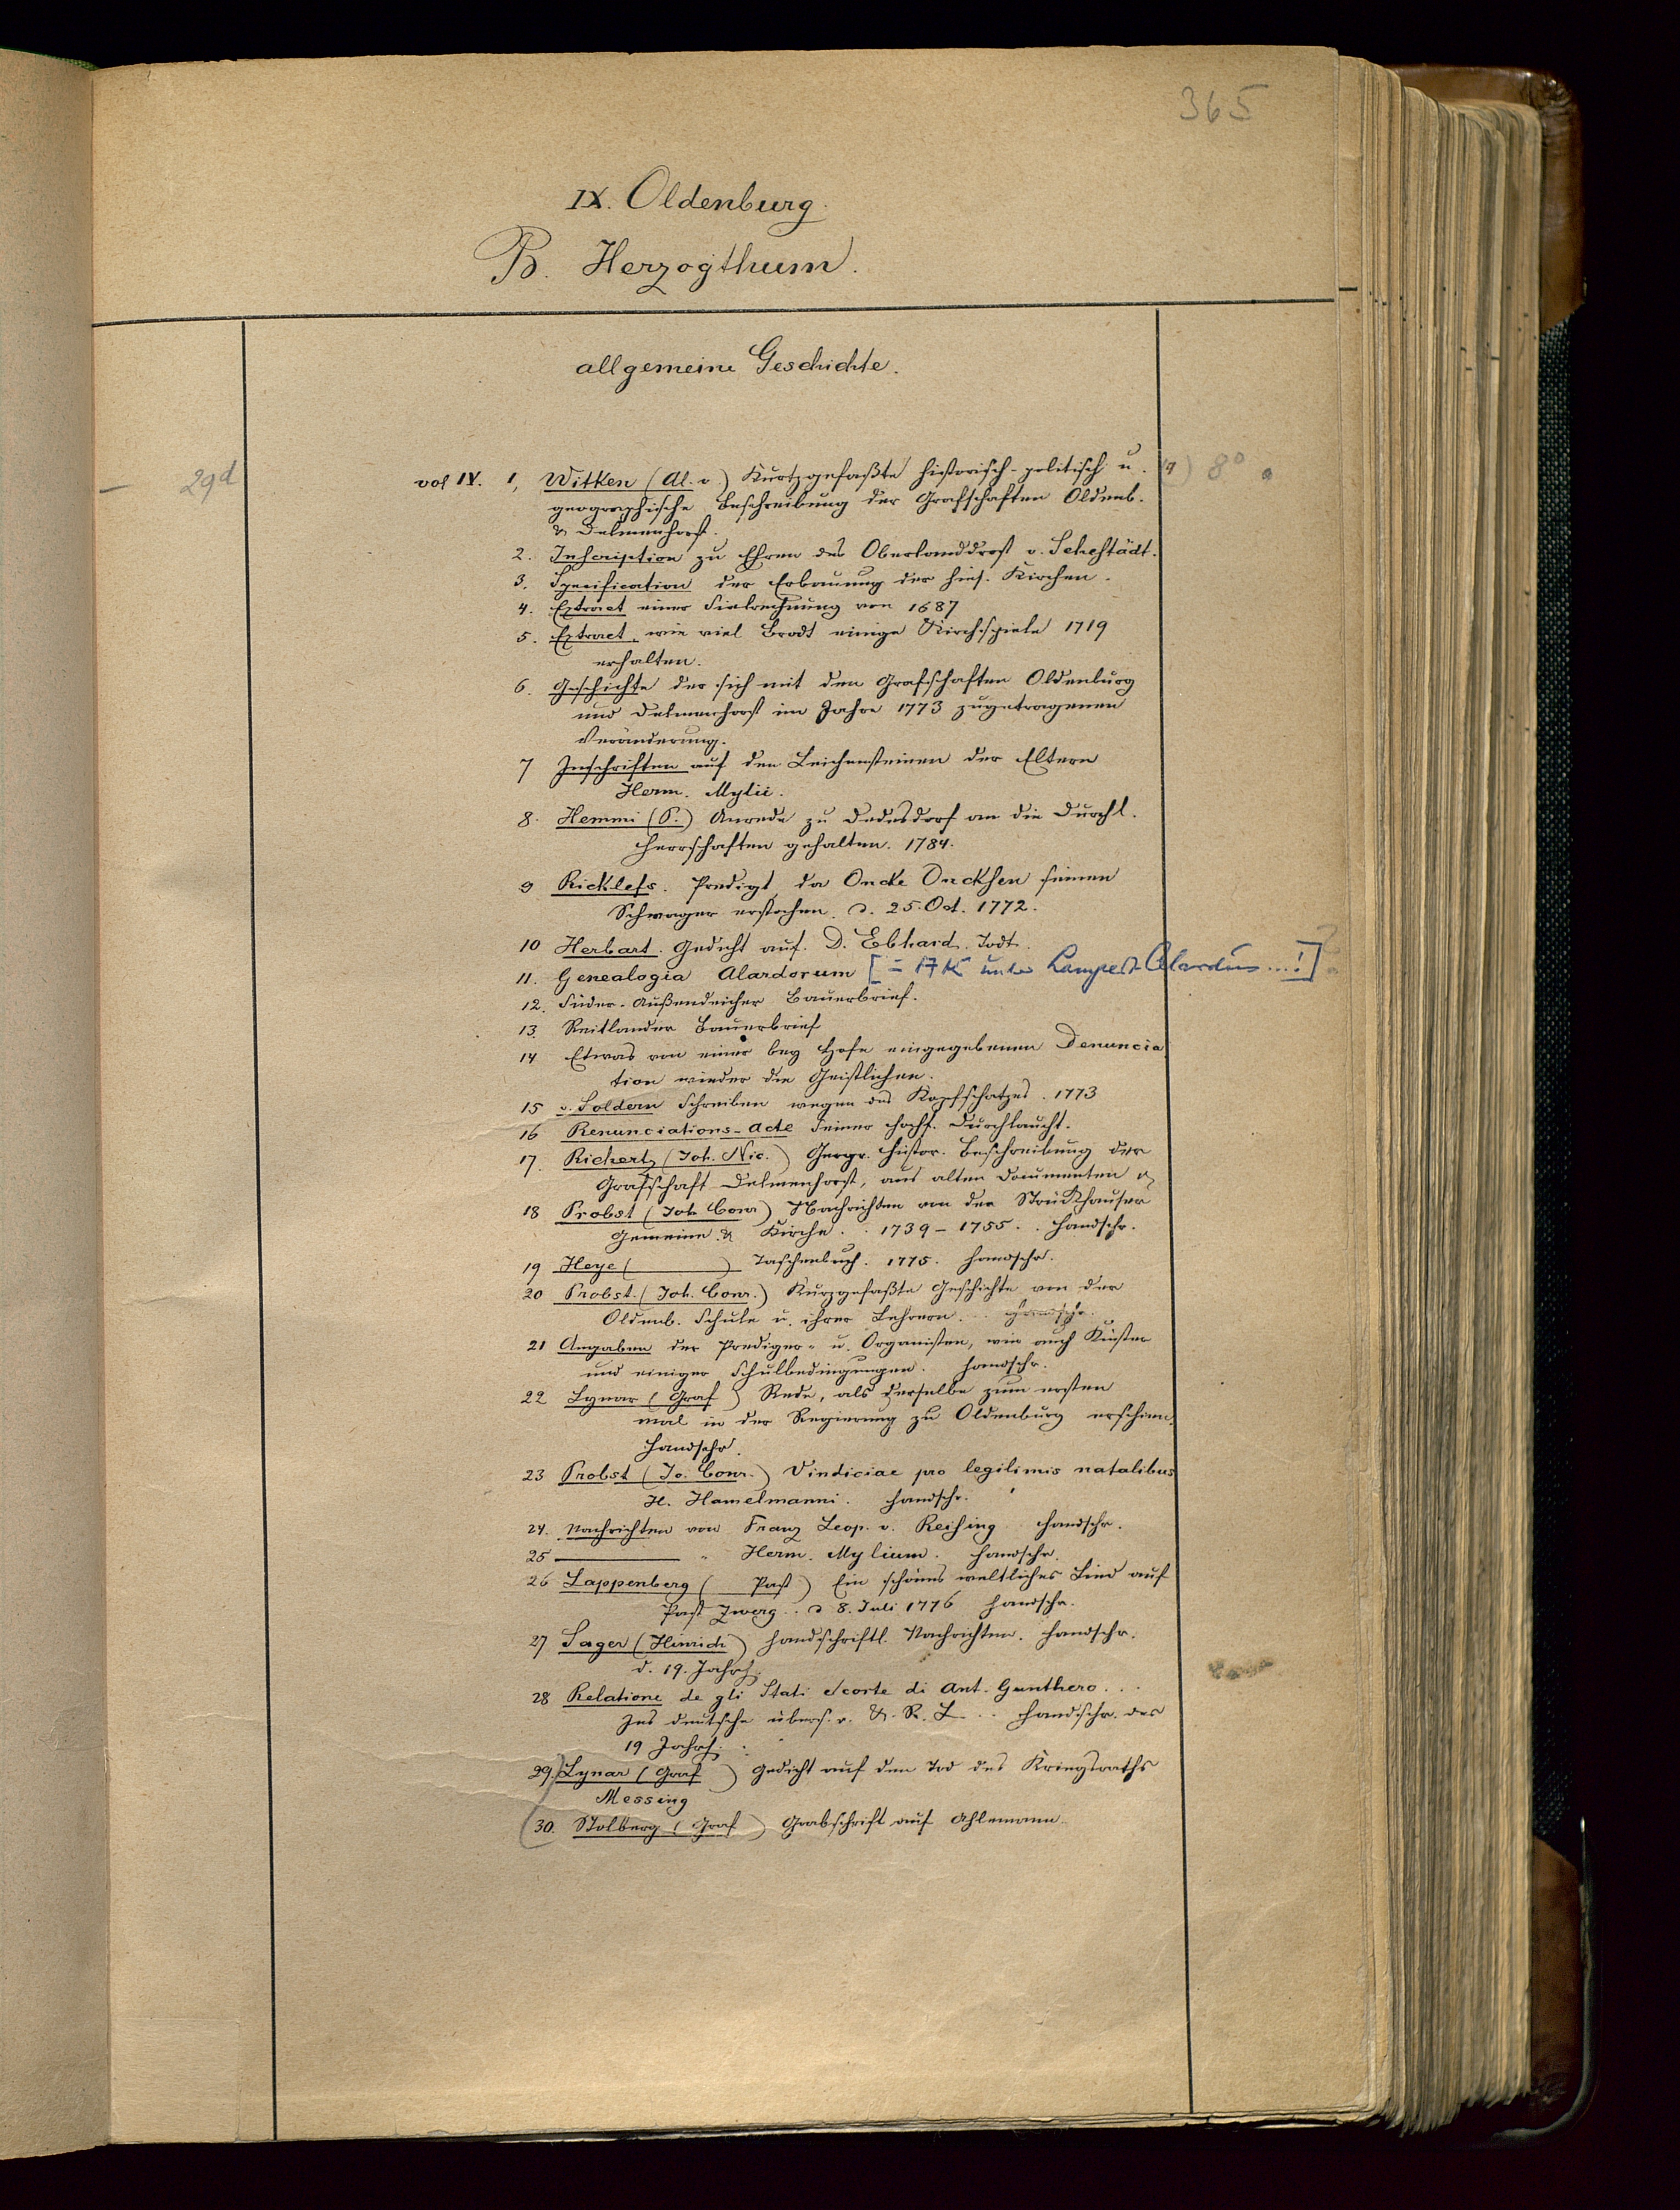 365
IX. Oldenburg.
B. Herzogthum.
allgemeine Geschichte.
— 29d
vol IV. 1, Witken (Al. v.) Kurtzgefaßte historisch-politisch u. 8°
geographische Beschreibung der Grafschaften Oldenb.
& Delmenhorst.
2. Inscription zu Ehren des Oberlanddrost v. Sehestädt.
3. Specification der Erbauung der hies. Kirchen.
4. Extract einer Sielrechnung von 1687
5. Extract, wie viel Brodt einige Kirchspiele 1719
erhalten.
6. Geschichte der sich mit den Grafschaften Oldenburg
und Delmenhorst im Jahre 1773 zugetragenen
Veränderung.
7 Inschriften auf den Leichensteinen der Eltern
Herm. Mylii.
8. Hemmi (P.) Anrede zu Dedesdorf an die Durchl.
Herrschaften gehalten. 1784.
9 Ricklefs. Predigt, da Oncke Oncksen seinen
Schwager erstochen. d. 25. Oct. 1772.
10 Herbart. Gedicht auf. D. Ebhard. Todt.
11. Genealogia Alardorum [= 17 K unter Lampert Alardus ...!]
12. Süder-Außendeicher Bauerbrief.
13. Reitlander Bauerbrief
14 Etwas von einer bey Hofe eingegebenen Denuncia
tion wieder die Geistlichen.
15 v. Soldern Schreiben wegen des Kopfschatzes. 1773
16 Renunciations-Acte Seiner Hochf. Durchlaucht.
17. Richertz (Joh. Nic.) Geogr. histor. Beschreibung der
Grafschaft Delmenhorst, aus alten Documenten
18 Probst (Joh. Conr) Nachrichten von der Strückhauser
Gemeine & Kirche . . 1739 - 1755 . . handschr.
19 Heye ( ) Taschenbuch. 1775. handschr.
20 Probst. (Joh. Conr.) Kurzgefaßte Geschichte von der
Oldenb. Schule u. ihrer Lehrern. . . handschr.
21 Angaben der Prediger- u. Organisten, wie auch Küster
und einiger Schulbedingungen. handschr.
22 Lynar (Graf ) Rede, als derselbe zum ersten
mal in der Regierung zu Oldenburg erschien.
handschr.
23 Probst (Jo. Conr.) Vindiciae pro legitimis natalibus
H. Hamelmanni. handschr.
24. Nachrichten von Franz Leop. v. Reising handschr.
25 ——— " Herm. Mylium. handschr.
26 Lappenberg ( Past) Ein schönes weltliches Lied auf
Past Zwerg . . d 8. Juli 1776 handschr.
27 Sager (Hinrich) handschriftl. Nachrichten. handschr.
d. 19. Jahrh.
28 Relatione de gli Stati e corte di Ant. Gunthero . . .
Ins deutsche übers. v. G. R. L . . handschr. des
19 Jahrh.
29. Lynar (Graf ) Gedicht auf den Tod des Kriegsraths
Messing
30. Stolberg (Graf ) Grabschrift auf Ahlemann.